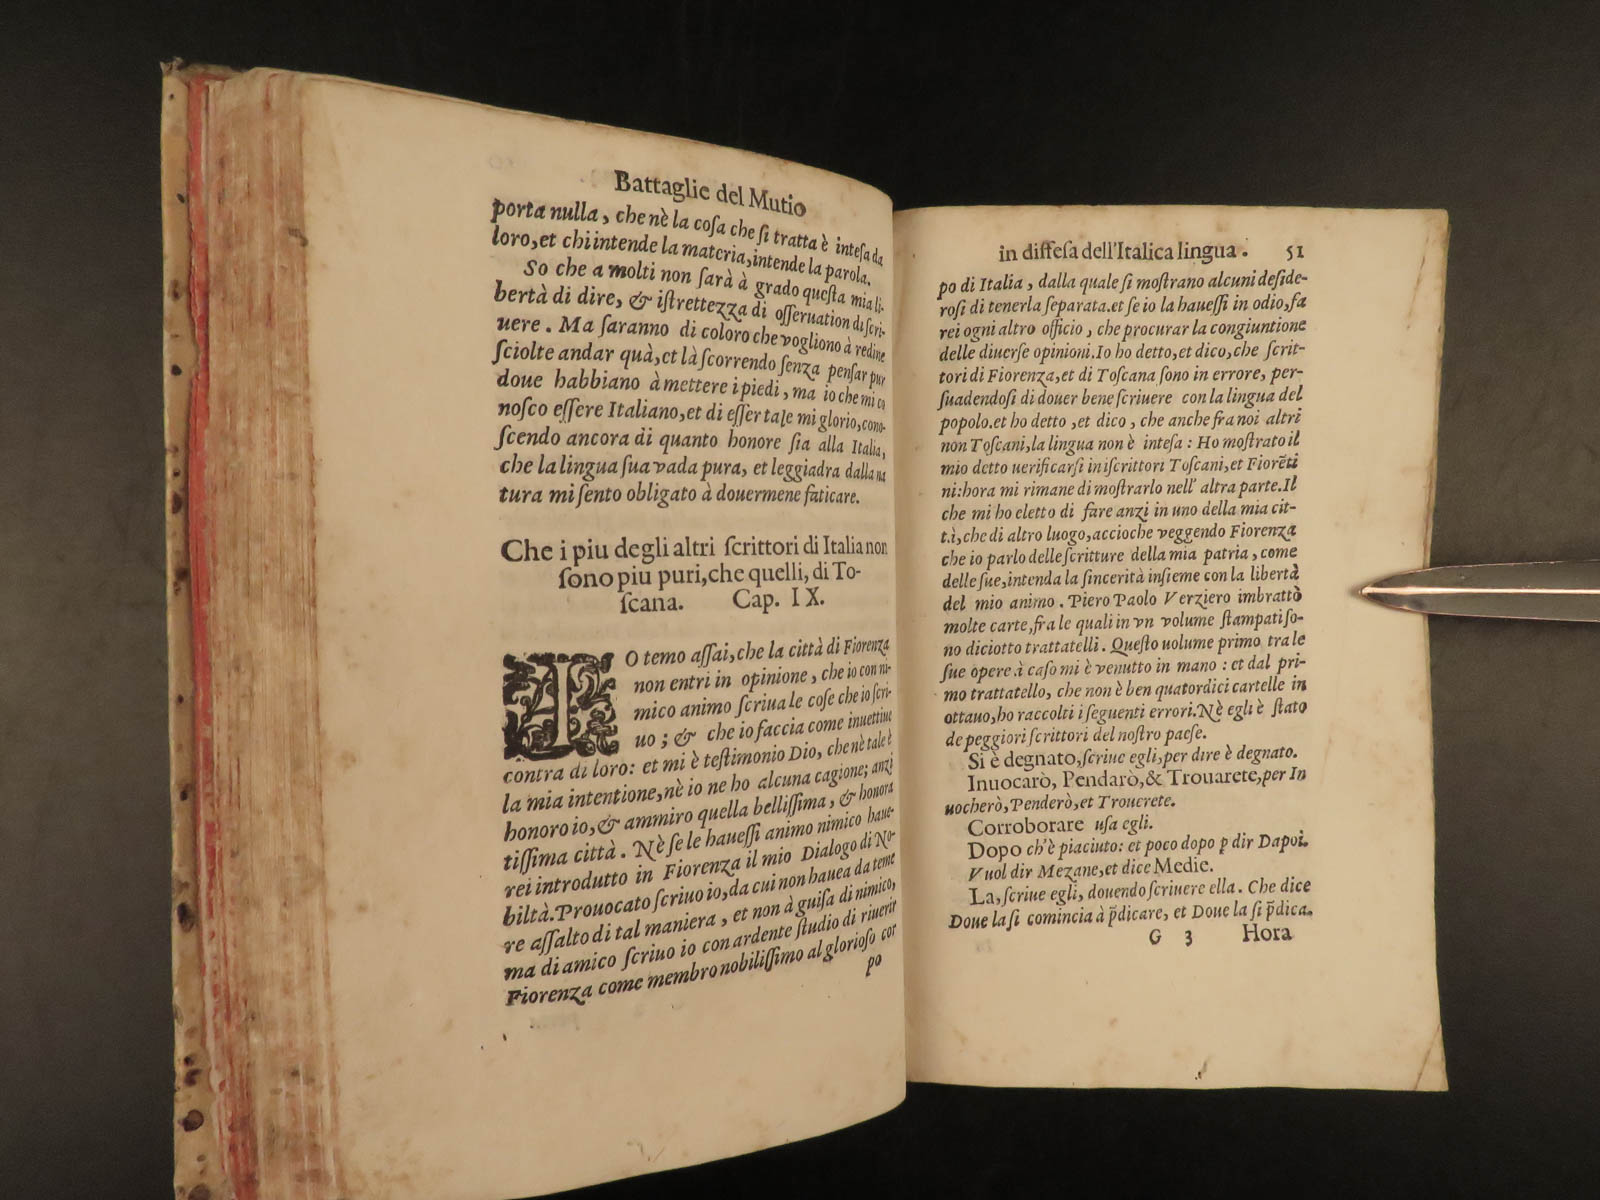 Battaglie del Mutio
porta nulla, che nè la coſa che ſi tratta è inteſa da
loro, et chi intende la materia, intende la parola.
So che a molti non ſarà à grado queſta mia li-
bertà di dire, & iſtrettezza di oſſeruation di ſcri-
uere. Ma ſaranno di coloro che vogliono à redine
ſciolte andar quà, et là ſcorrendo ſenza penſar pur
doue habbiano à mettere i piedi, ma io che mi co
noſco eſſere Italiano, et di eſſer tale mi glorio, cono-
ſcendo ancora di quanto honore ſia alla Italia,
che la lingua ſua vada pura, et leggiadra dalla na
tura mi ſento obligato à douermene faticare.
Che i piu degli altri ſcrittori di Italia non
ſono piu puri, che quelli, di To-
ſcana. Cap. IX.
IO temo aſſai, che la città di Fiorenza
non entri in opinione, che io con ni-
mico animo ſcriua le coſe che io ſcri-
uo; & che io faccia come inuettiue
contra di loro: et mi è teſtimonio Dio, che nè tale è
la mia intentione, nè io ne ho alcuna cagione; anzi
honoro io, & ammiro quella belliſſima, & honora
tiſſima città. Nè ſe le haueſſi animo nimico haue-
rei introdutto in Fiorenza il mio Dialogo di No-
biltà. Prouocato ſcriuo io, da cui non hauea da teme
re aſſalto di tal maniera, et non à guiſa di nimico,
ma di amico ſcriuo io con ardente ſtudio di riuerir
Fiorenza come membro nobiliſſimo al glorioſo cor
po
in diffeſa dell'Italica lingua. 51
po di Italia, dalla quale ſi moſtrano alcuni deſide-
roſi di tenerla ſeparata. et ſe io la haueſſi in odio, fa
rei ogni altro officio, che procurar la congiuntione
delle diuerſe opinioni. Io ho detto, et dico, che ſcrit-
tori di Fiorenza, et di Toſcana ſono in errore, per-
ſuadendoſi di douer bene ſcriuere con la lingua del
popolo. et ho detto, et dico, che anche fra noi altri
non Toſcani, la lingua non è inteſa: Ho moſtrato il
mio detto uerificarſi in iſcrittori Toſcani, et Fiorẽti
ni: hora mi rimane di moſtrarlo nell' altra parte. Il
che mi ho eletto di fare anzi in uno della mia cit-
tà, che di altro luogo, accioche veggendo Fiorenza
che io parlo delle ſcritture della mia patria, come
delle ſue, intenda la ſincerità inſieme con la libertà
del mio animo. Piero Paolo Verziero imbrattò
molte carte, fra le quali in vn volume ſtampati ſo-
no diciotto trattatelli. Queſto uolume primo tra le
ſue opere à caſo mi è venutto in mano: et dal pri-
mo trattatello, che non è ben quatordici cartelle in
ottauo, ho raccolti i ſeguenti errori. Nè egli è ſtato
de peggiori ſcrittori del noſtro paeſe.
Si è degnato, ſcriue egli, per dire è degnato.
Inuocarò, Pendarò, & Trouarete, per In
uocherò, Penderò, et Trouerete.
Corroborare uſa egli.
Dopo ch'è piaciuto: et poco dopo ꝑ dir Dapoi.
Vuol dir Mezane, et dice Medie.
La, ſcriue egli, douendo ſcriuere ella. Che dice
Doue la ſi comincia à p̃dicare, et Doue la ſi p̃dica.
G 3 Hora